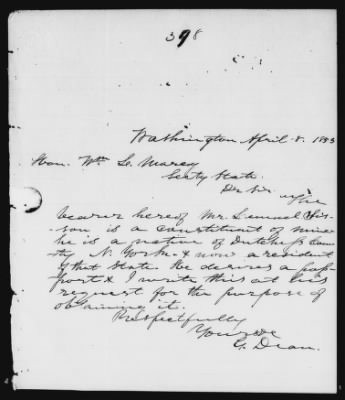 398
Washington April 8. 1853
Hon. Wm L. Marcy
Secty State.
Dr Sir. The
bearer hereof Mr. Lemuel Sis-
son is a constituent of mine
he is a native of Dutchess Coun-
ty N. York & now a resident
of that State. He desires a pas-
port & I write this at his
request for the purpose of
obtaining it.
Respectfully
Yours &c
G. Dean.